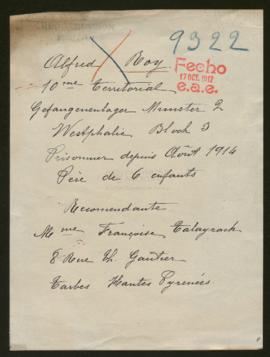 9322
Alfred Roy
Fecho
17 OCT. 1917
e.a.e.
10me Territorial
Gefangenenlager Munster 2
Westphalie Block 3
Prisonnier depuis Août 1914
Père de 6 enfants
Recomendante
Mme Françoise Talayrach
8 Rue Th. Gautier
Tarbes Hautes Pyrenées